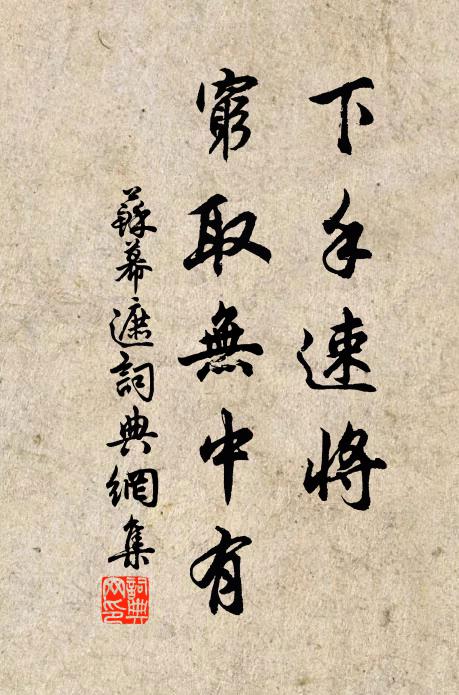 下手速將
窮取無中有
蘇幕遮詞典網集
詞典網印